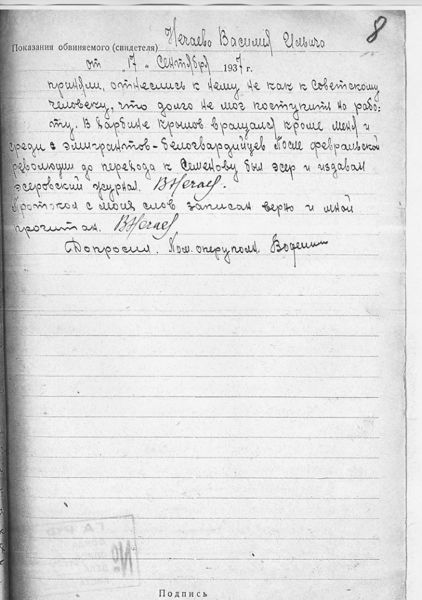 8
Показания обвиняемого (свидетеля) Нечаево Василия Ильича
от 17 Сентября 1937 г.
приняли, отнеслись к нему не как к Советскому
человеку, что долго не мог поступить на рабо-
ту. В Харбине Крылов вращался кроме меня и
среди эмигрантов-белогвардийцев После февральской
революции до перехода к Семенову был эсер и издавал
эсеровский журнал. ВНечаев.
Протокол с моих слов записан верно и мной
прочитан. ВНечаев
Допросил. Пом. оперуполн.
ГАРФ
№
Подпись